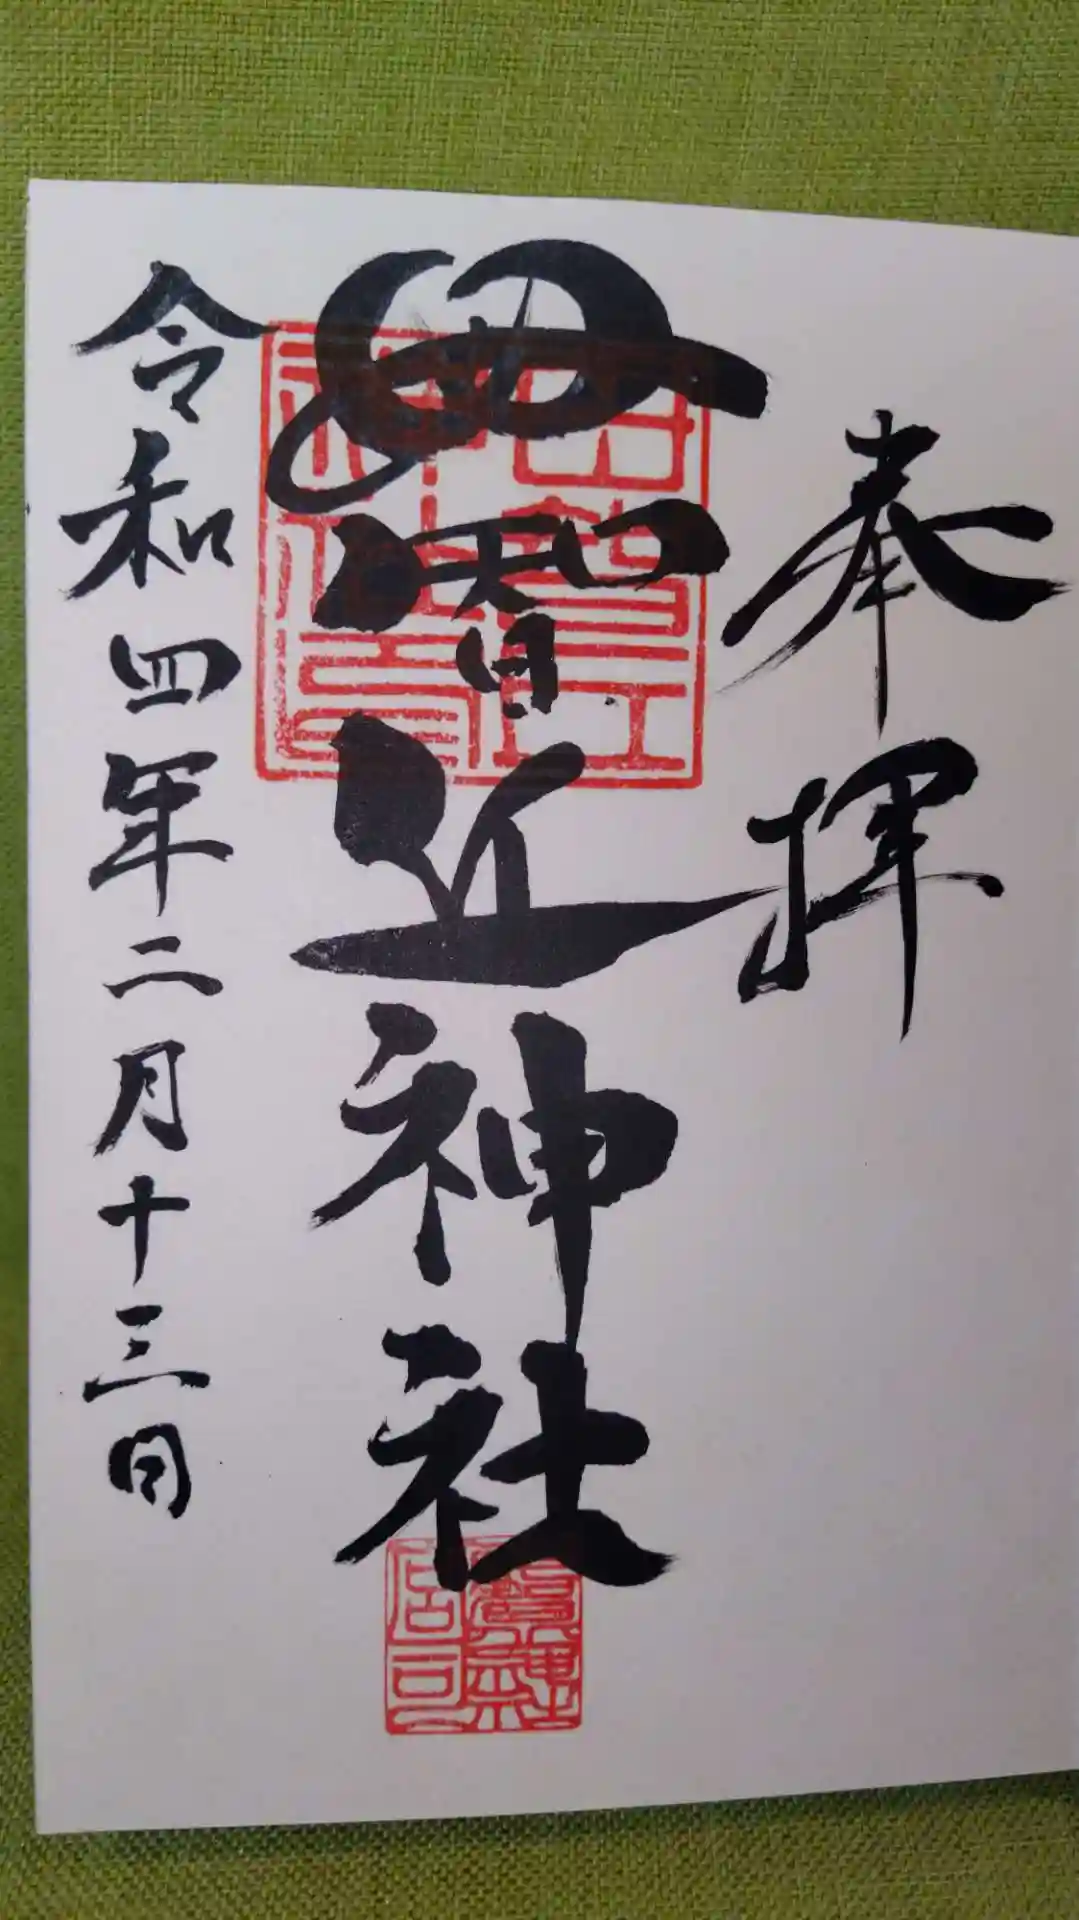 奉拝
田智近神社
令和四年二月十三日